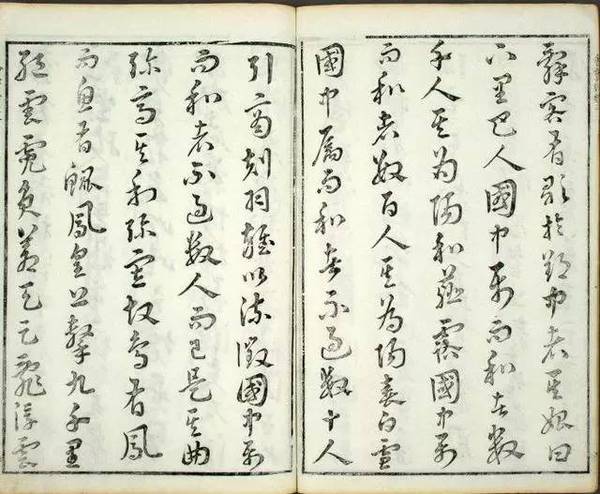 辭客有歌於郢中者其始曰
下里巴人國中属而和者數
千人其為陽和薤露國中属
而和者數百人其為陽春白雪
國中屬而和者不過數十人
引商刻羽雜以流徵國中属
而和者不過數人而已是其曲
弥高其和弥寡故鳥有鳳
而魚有鯤鳳皇上擊九千里
絕雲霓負蒼天足亂浮雲